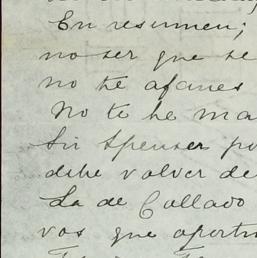 En resumen;
no ser que se
no te afanes
No te he ma
Sir Spenser po
debe volver de
La de Collado
vos que aportu